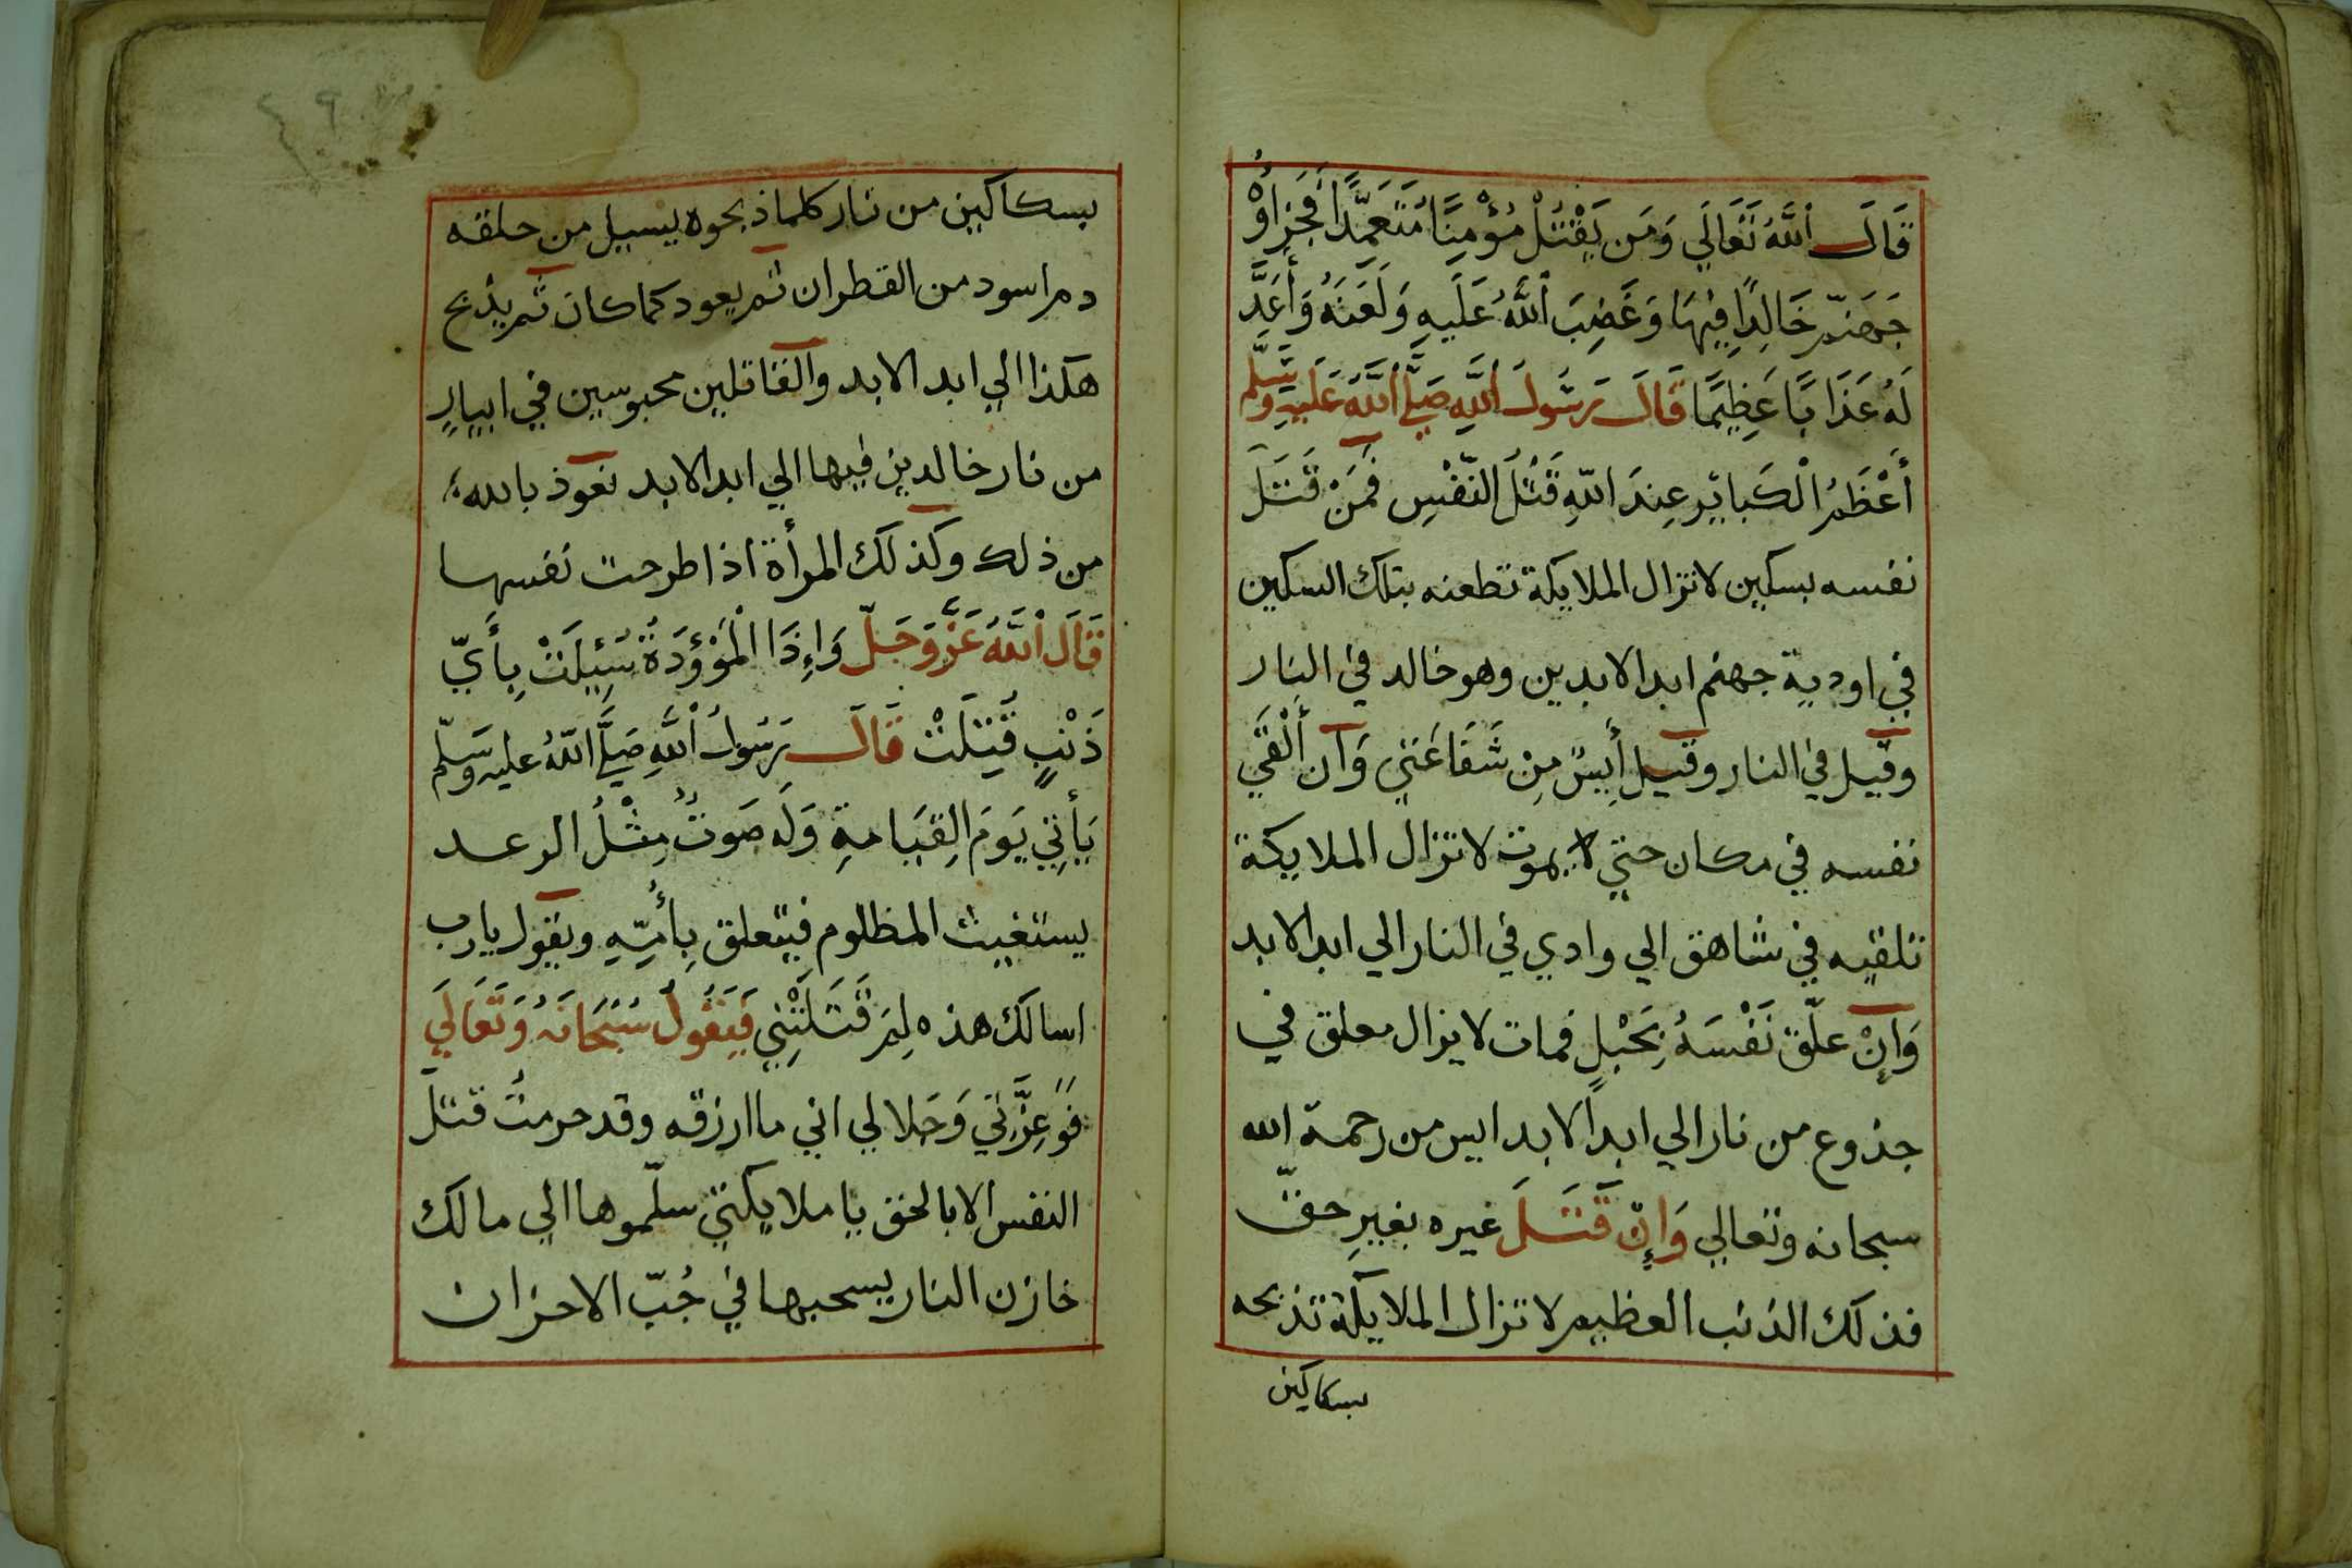 قَالَ اللَّهُ تَعَالَي وَمَن يَقْتُلْ مُؤْمِنًا مُتَعَمِّدًا فَجَزَاؤُ
جَهَنَّم خَالِدًا فِيهَا وَغَضِبَ اللَّهُ عَلَيهِ وَلَعَنَهُ وَأَعَدَّ
لَهُ عَذَابًا عَظِيمًا قَالَ رَسُولَ اللَّهِ صَلَّي اللَّهُ عَلَيهِ وَسَلَّم
أَعْظَمُ الْكَبايَر عِندَ اللّهِ قَتْلُ النَّفْسِ فَمَنْ قَتَلَ
نفسه بسكين لا تزال الملايكة تطعنه بتلك السكين
في اودية جهنم ابد الابدين وهو خالد في النار
وقيل في النار وقيل أيِسٌ مِن شَفَاعَتي وَان أَلْقَي
نفسه في مكان حتي لا يموت لا تزال الملايكة
تلقيه في شاهق الي وادي في النار الي ابد الابد
وَإِنْ علّق نَفْسَهُ بِحَبْلٍ فمات لا يزال معلق في
جذوع من نار الي ابداً لابد ايس من رحمة الله
سبحانه وتعالي وَإِنْ قَتَلَ غيره بغيرِ حقّ
فذلك الذنب العظيم لا تزال الملايكة تذبحه
بسكاكين
بسكاكين من نار كلما ذبحوه يسيل من حلقه
دم اسود من القطران ثم يعود كما كان ثم يذبح
هكذا الي ابد الابد والقاتلين محبوسين في ابيارٍ
من نار خالدين فيها الي ابد الابد نعوذ بالله
من ذلك وكذلك المرأة اذا طرحت نفسها
قَالَ اللَّهُ عَزَّ وَجَلّ وَإِذَا الْمَوْؤُدَةُ سُئِلَتْ بِأَيِّ
ذَنْبٍ قُتِلَتْ قَالَ رَسُولُ اللَّهِ صَلَّي اللّهُ عليه وسَلّم
يَأتِي يَومَ القِيَامةِ وَلَه صَوتٌ مِثْلُ الرعد
يستغيث المظلوم فيتعلق بِأُمِّهِ ويقول يارب
اسالك هذه لِمَ قَتَلَتْنِي فَيَقُولُ سُبْحَانَهُ وَتَعَالَي
فوَعِزَّتي وَجَلالي اني ما ارزقه وقد حرمتُ قتل
النفس الا بالحق يا ملايكتي سلّموها الي مالك
خازن النار يسحبها في جُبّ الاحزان